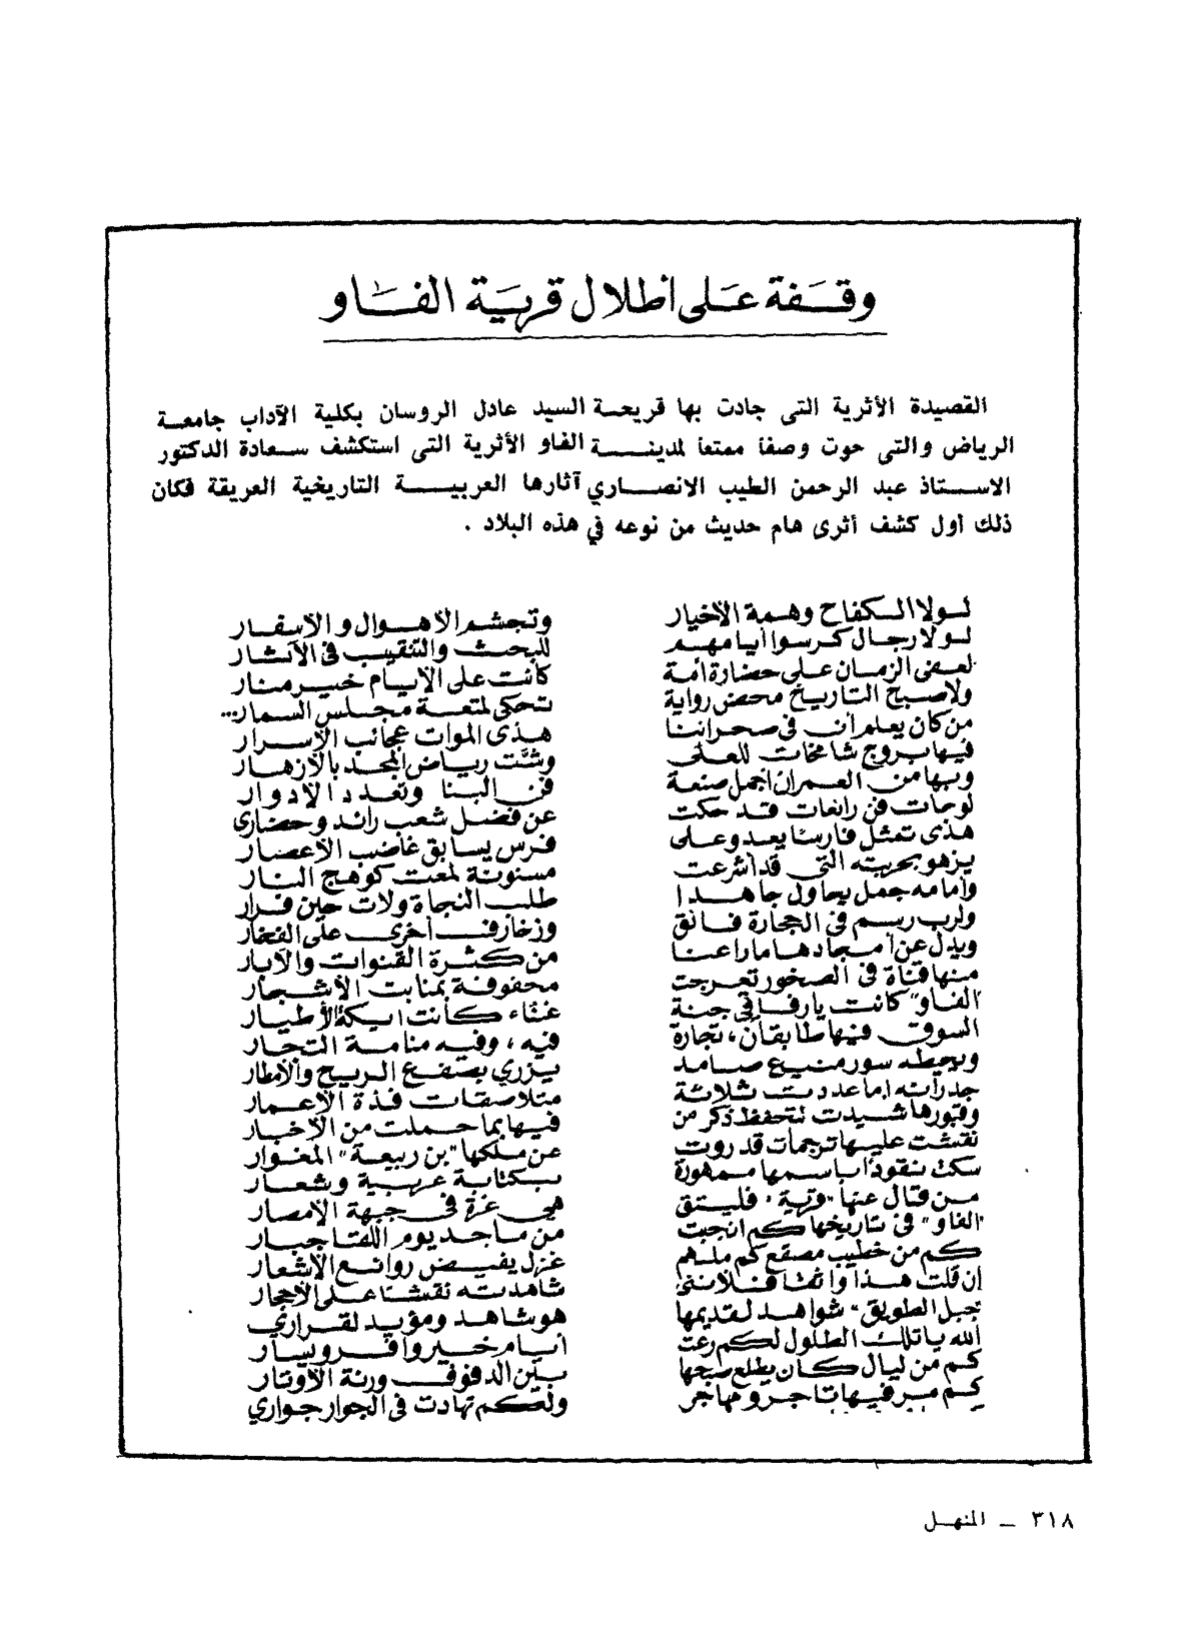 وقفة على أطلال قرية الفاو
القصيدة الأثرية التى جادت بها قريحة السيد عادل الروسان بكلية الآداب جامعة
الرياض والتى حوت وصفا ممتعا لمدينة الفاو الأثرية التى استكشف سعادة الدكتور
الاستاذ عبد الرحمن الطيب الانصاري آثارها العربية التاريخية العريقة فكان
ذلك أول كشف أثرى هام حديث من نوعه في هذه البلاد .
لولا الكفاح وهمة الأخيار وتجشم الأهوال والأسفار
لولا رجال كرسوا أيامهم للبحث والتنقيب فى الآثار
لعفى الزمان على حضارة امة كانت على الأيام خير منار
ولأصبح التاريخ محض رواية تحكى لمتعة مجلس السمار...
من كان يعلم أن فى صحرائنا هذى الموات عجائب الأسرار
فيها بروج شامخات للعلى وشت رياض المجد بالأزهار
وبها من العمران أجمل صنعة فن البنا وتعدد الأدوار
لوحات فن رائعات قد حكت عن فضل شعب رائد وحضارى
هذى تمثل فارسا يعدو على فرس يسابق غاضب الأعصار
يزهو بحربته التي قد أشرعت مسنونة لمعت كوهج النار
وأمامه جمل يحاول جاهدا طلب النجاة ولات حين فرار
ولرب رسم فى الحجارة فائق وزخارف اخرى على الفخار
ويدل عن أمجادها ما راعنا من كثرة القنوات والآبار
منها قناة فى الصخور تعرجت محفوفة بمنابت الأشجار
"الفاو" كانت يا رفاقى جنة غناء كانت ايكة الأطيار
السوق فيها طابقان، تجارة فيه، وفيه منامة التجار
ويحيطه سور منيع صامد يزري بصفع الريح والأمطار
جدرانه إما عددت ثلاثة متلاصقات فذة الأعمار
وقبورها شيدت لتحفظ ذكر من فيها بما حملت من الأخبار
نقشت عليها ترجمات قد روت عن ملكها "بن ربيعة" المغوار
سكت نقودا باسمها ممهورة بكتابة عربية وشعار
من قال عنها "قرية" فليتق هي غرة فى جبهة الأمصار
"الفاو" فى تاريخها كم انجبت من ماجد يوم اللقا جبار
كم من خطيب مصقع كم ملهم غزل يفيض روائع الأشعار
إن قلت هذا واثقا فلأننى شاهدته نقشا على الأحجار
"جبل الطويق" شواهد لقديمها هو شاهد ومؤيد لقراري
الله يا تلك الطلول لكم رعت أيام خير وافر ويسار
كم من ليال كان يطلع صبحها بين الدفوف ورنة الأوتار
كم مر فيها تاجر ومهاجر ولكم تهادت فى الجوار جواري
٣١٨ ـ المنهل